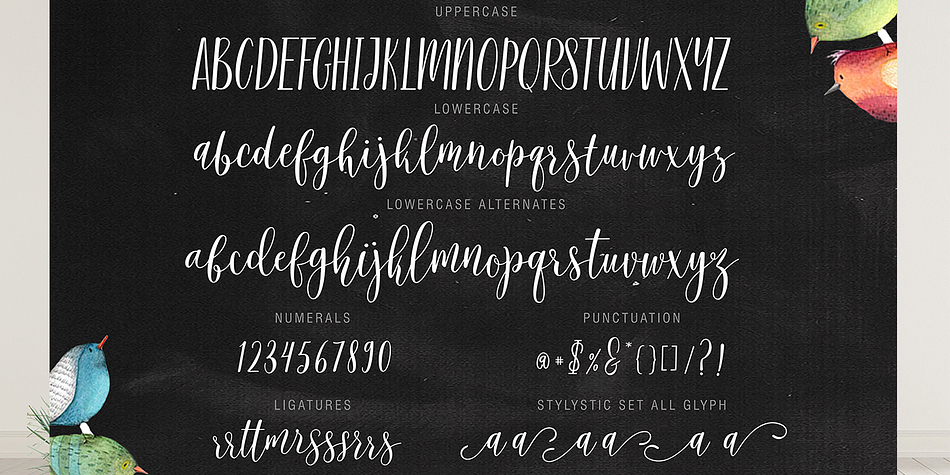 UPPERCASE
ABCDEFGHIJKLMNOPQRSTUVWXYZ
LOWERCASE
abcdefghijklmnopqrstuvwxyz
LOWERCASE ALTERNATES
abcdefghijklmnopqrstuvwxyz
NUMERALS
1234567890
PUNCTUATION
@#$%&*(){}[]/?!
LIGATURES
STYLYSTIC SET ALL GLYPH
a a a a a a